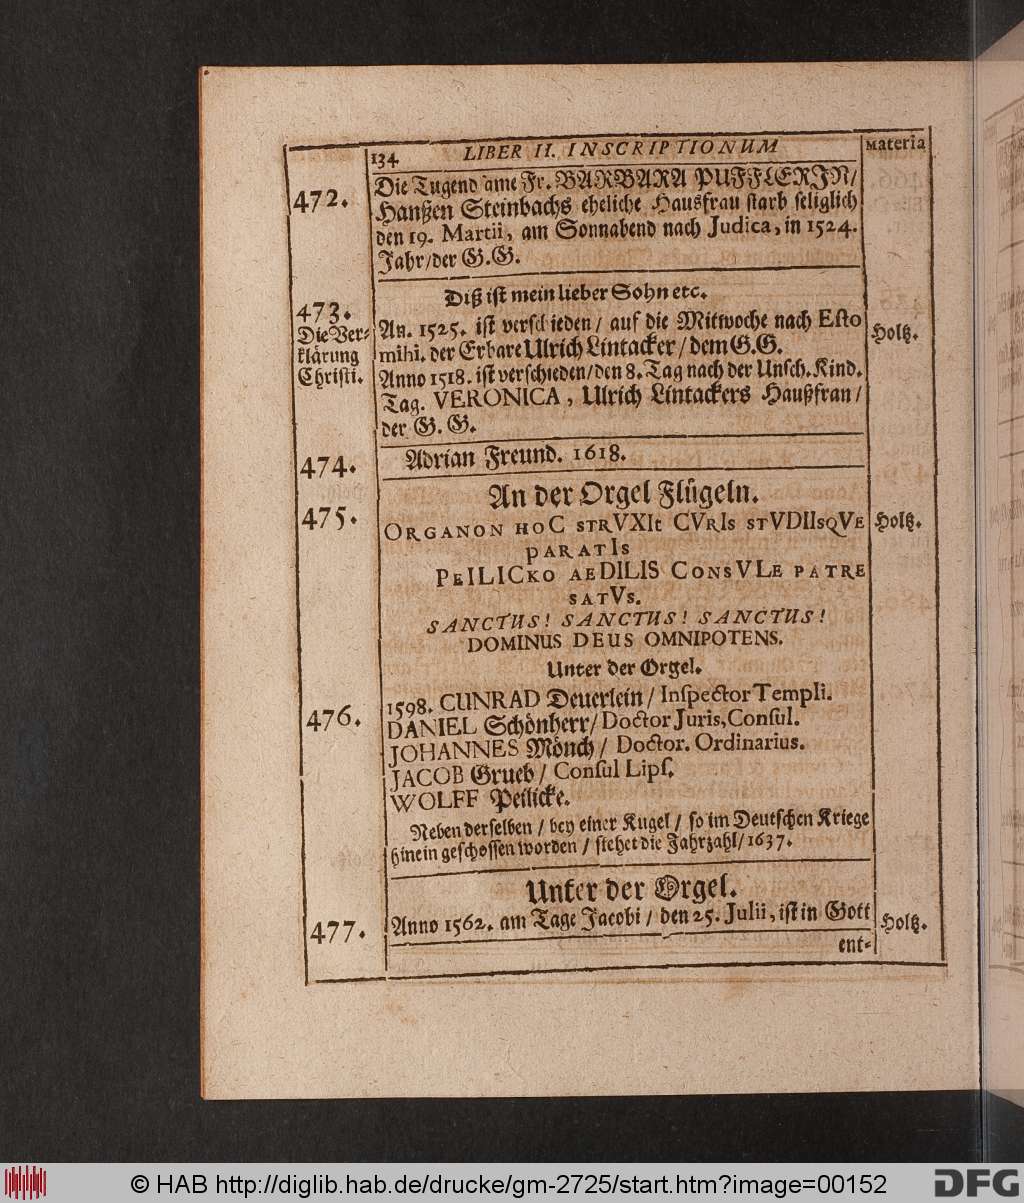 134 LIBER II. INSCRIPTIONUM Materia
472. Die Tugend ame Fr. BARBARA PUFFLERIN/
Hanßen Steinbachs eheliche Hausfrau starb seliglich
den 19. Martii, am Sonnabend nach Judica, in 1524.
Jahr/der G.G.
Diß ist mein lieber Sohn etc.
473.
Die Ver-
klärung
Christi.
An. 1525. ist verschieden/ auf die Mitwoche nach Esto
mihi. der Erbare Ulrich Lintacker/dem G.G.
Anno 1518. ist verschieden/den 8. Tag nach der Unsch. Kind.
Tag. VERONICA, Ulrich Lintackers Haußfrau/
der G. G.
Holtz.
474. Adrian Freund. 1618.
An der Orgel Flügeln.
475. ORGANON HOC STRVXIt CVRIs STVDIIsQVE Holtz.
PARATIs
PEILICKO AEDILIS CONSVLE PATRE
SATVs.
SANCTUS! SANCTUS! SANCTUS!
DOMINUS DEUS OMNIPOTENS.
Unter der Orgel.
476. 1598. CUNRAD Deuerlein/ Inspector Templi.
DANIEL Schönherr/ Doctor Juris, Consul.
JOHANNES Mönch/ Doctor. Ordinarius.
JACOB Grueb/ Consul Lips.
WOLFF Peilicke.
Neben derselben/ bey einer Kugel/ so im Deutschen Kriege
hinein geschossen worden/ stehet die Jahrzahl/1637.
Unter der Orgel.
477. Anno 1562. am Tage Jacobi/ den 25. Julii, ist in Gott Holtz.
ent-
© HAB http://diglib.hab.de/drucke/gm-2725/start.htm?image=00152
DFG